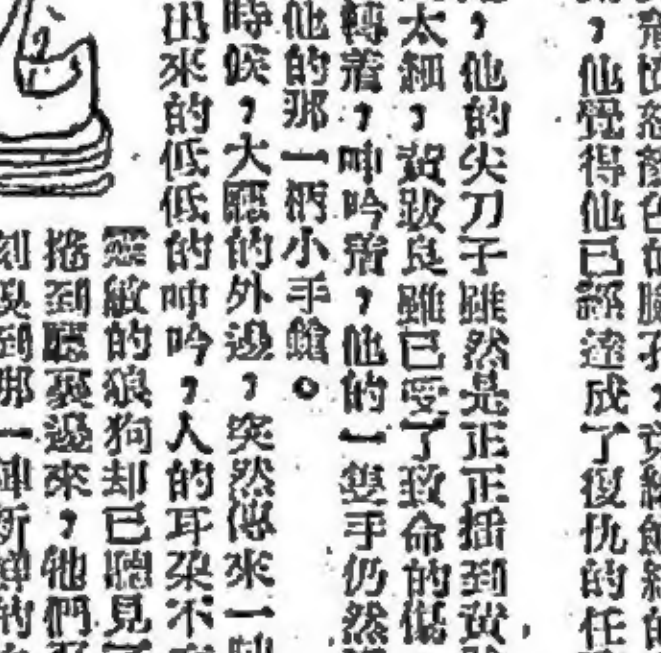 的臉孔，
，他覺得他已經達成了復仇的任
，他的尖刀子雖然是正正插到黃
太細，黃跛良雖已受了致命的傷
轉着，呻吟着，他的一隻手仍然
他的那一柄小手鎗。
時候，大廳的外邊，突然傳來一陣
出來的低低的呻吟，人的耳朶不
靈敏的狼狗却已聽見了
撘到廳裏邊來，牠們
刻嗅到那一陣新鮮的